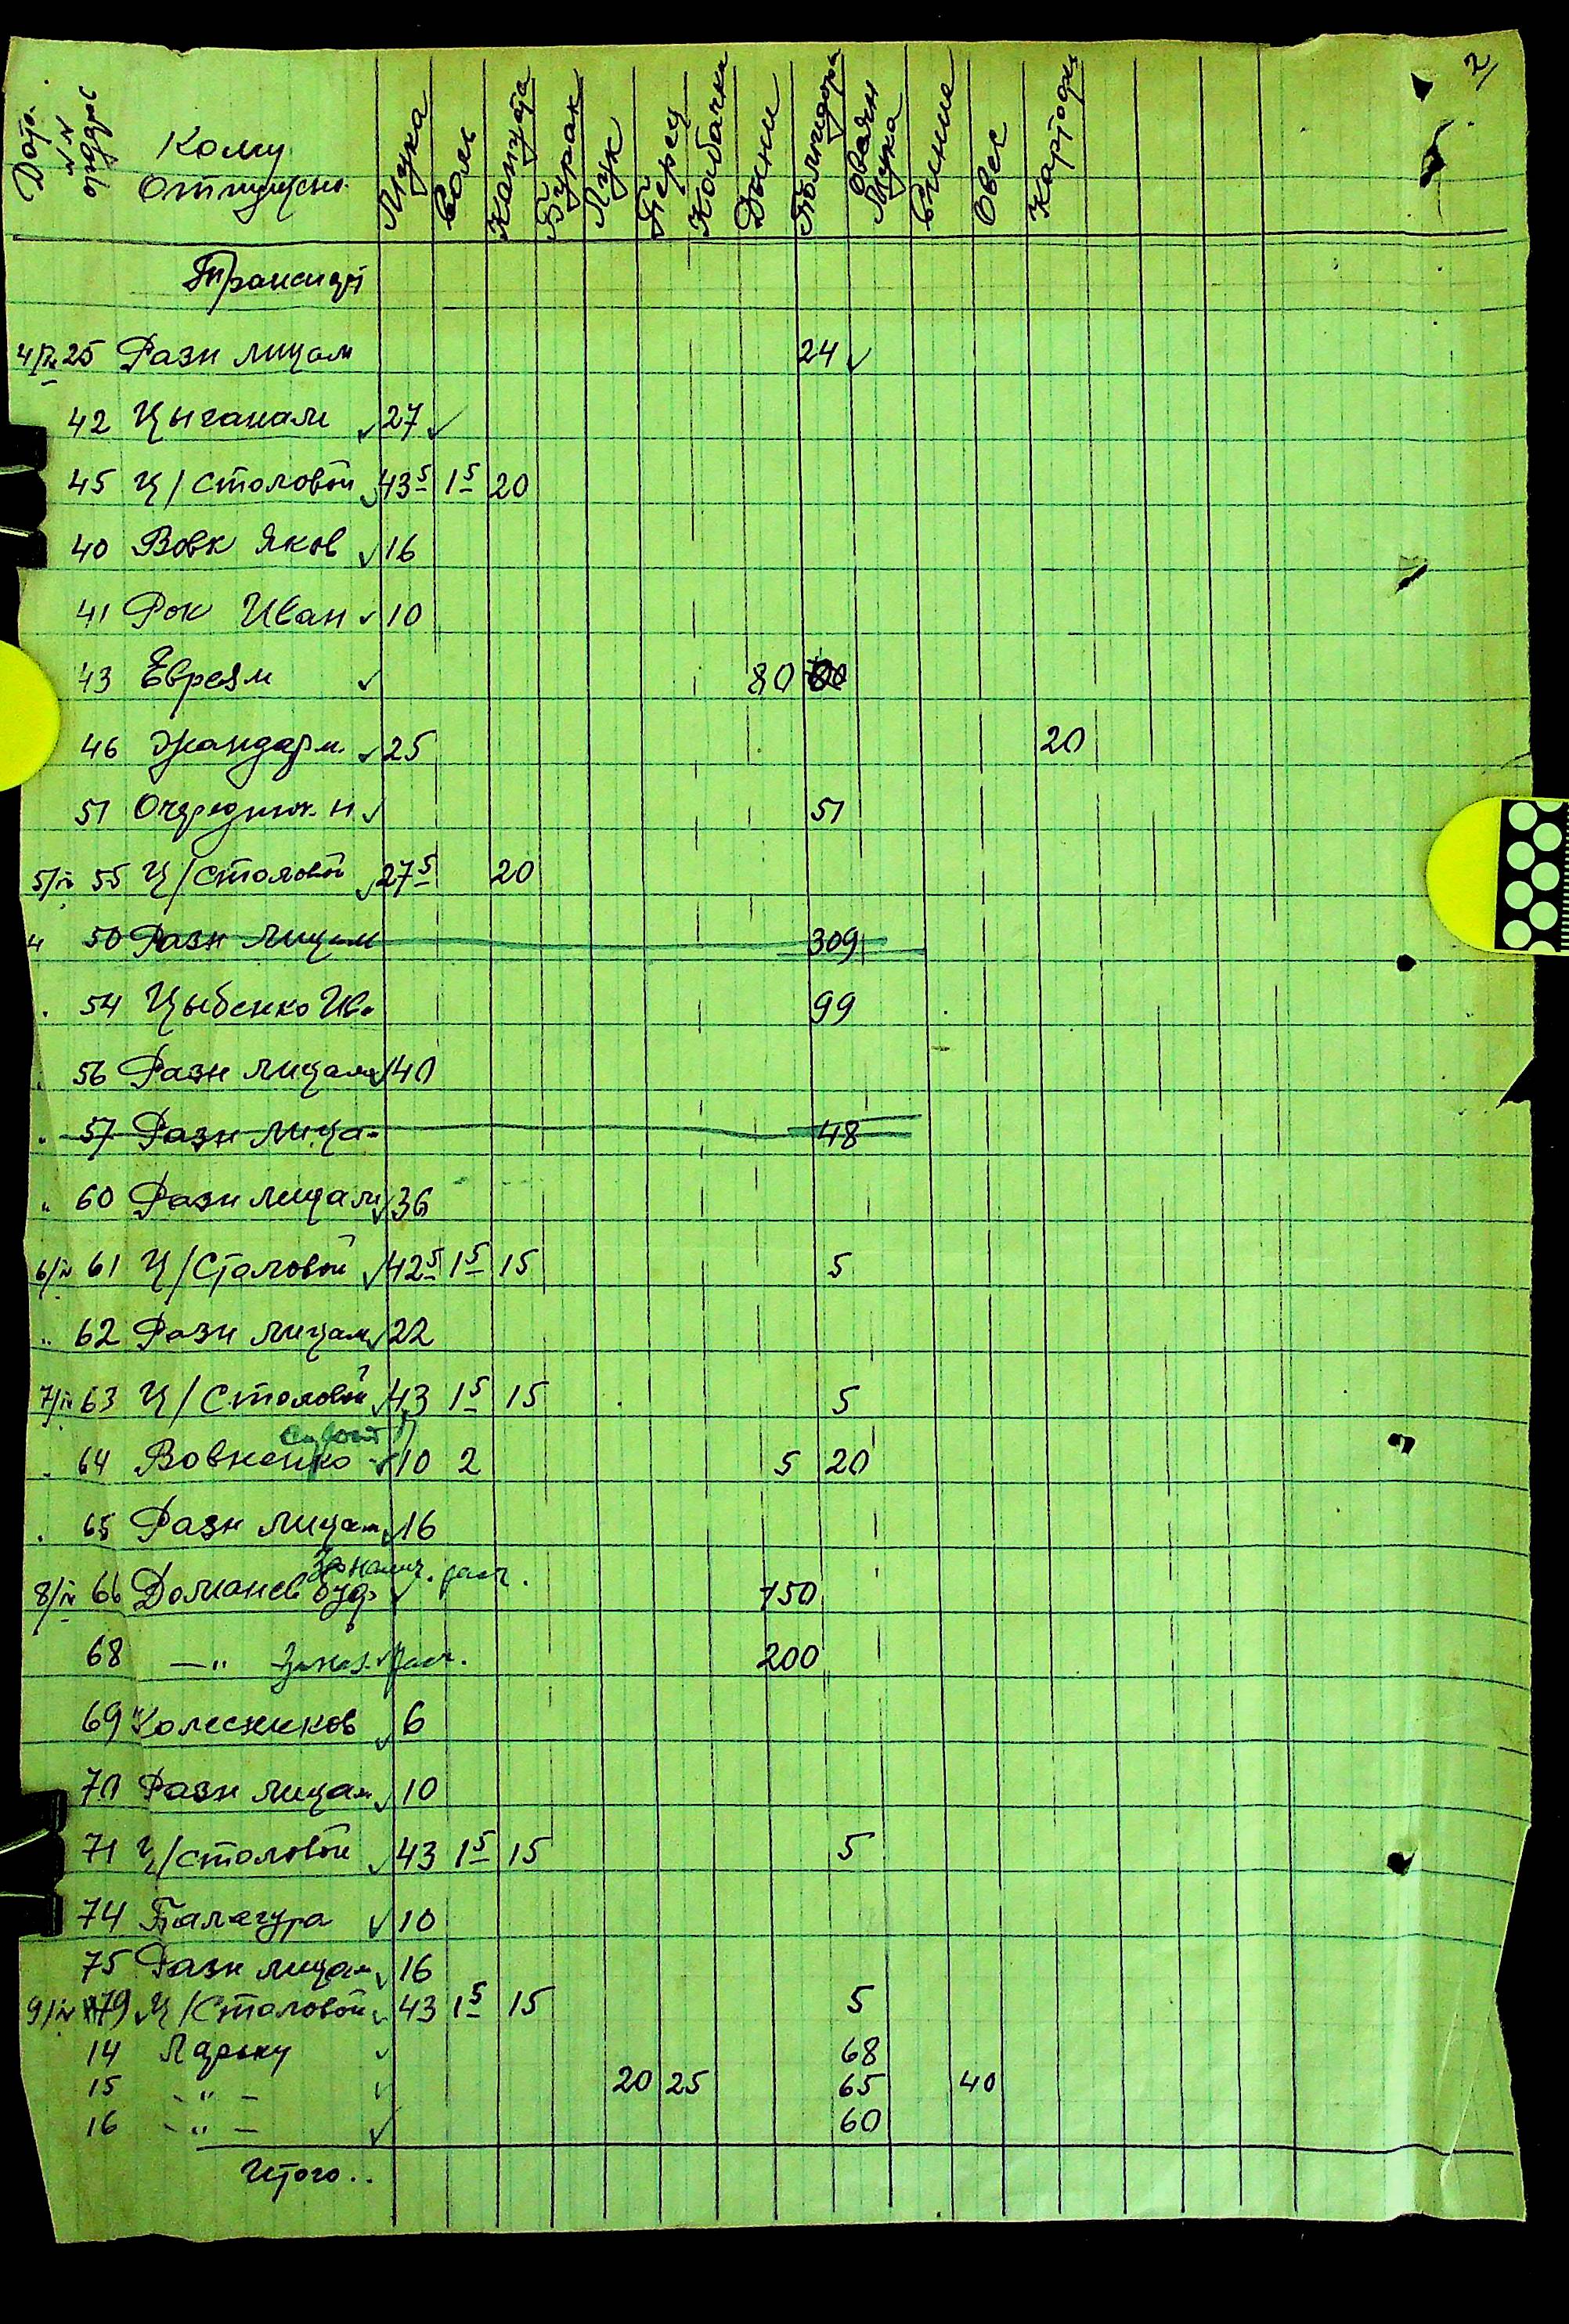 2
Дата №№ ордера Кому отпущено Мука Соль Капуста Бурак Лук Перец Кабачки Дыни Помидоры Овсян мука Синие Овес Картофь
Транспорт
4/IX 25 Разн лицам 24
42 Цыганам 27
45 Ц/Столовой 43 5 1 5 20
40 Вовк Яков 16
41 Рок Иван 10
43 Евреям 80
46 Жандарм. 25 20
51 51
5/IX 55 Ц/Столовой 27 5 20
4 50 Разн лицам 309
54 Цыбенко Ив. 99
56 Разн лицам 40
57 Разн лица- 48
" 60 Разн лицам 36
6/IX 61 Ц/Столовой 42 5 1 5 15 5
" 62 Разн лицам 22
7/IX 63 Ц/Столовой 43 1 5 15 5
64 Вовненко 10 2 5 20
65 Разн лицам 16
за налич. расч.
8/IX 66 Доманев 150
68 —"— 200
69 Колесников 6
70 Разн лицам 10
71 Ц/Столовой 43 1 5 15 5
74 Балагура 10
75 Разн лицам 16
9/IX 79 Ц/Столовой 43 1 5 15 5
14 Ларьку 68
15 - " - 20 25 65 40
16 - " - 60
Итого..